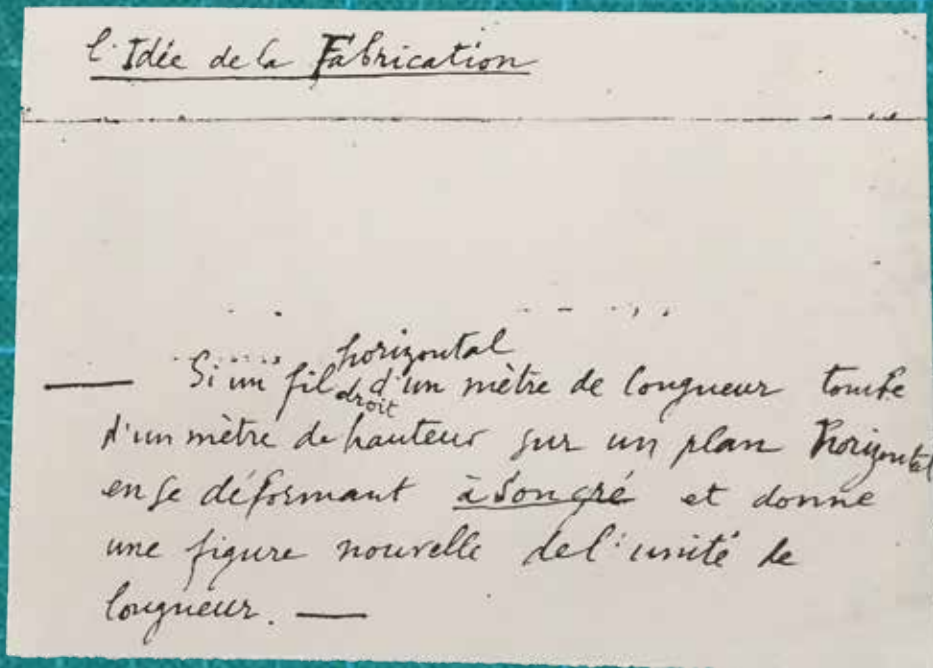 l'Idée de la Fabrication
horizontal
— Si un fil d'un mètre de longueur tombe
droit
d'un mètre de hauteur sur un plan horizontal
en se déformant à son gré et donne
une figure nouvelle de l'unité de
longueur. —